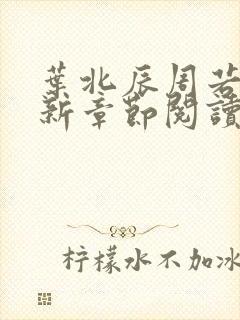 葉北辰周若
新章節閱讀
柠檬水不加冰